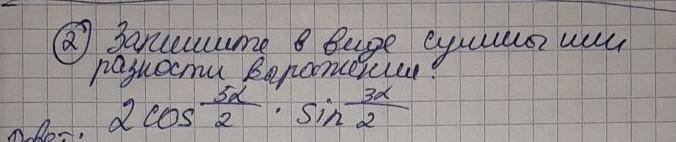 ② Запишите в виде суммы или
разности выражении:
2 cos 5α/2 · sin 3α/2